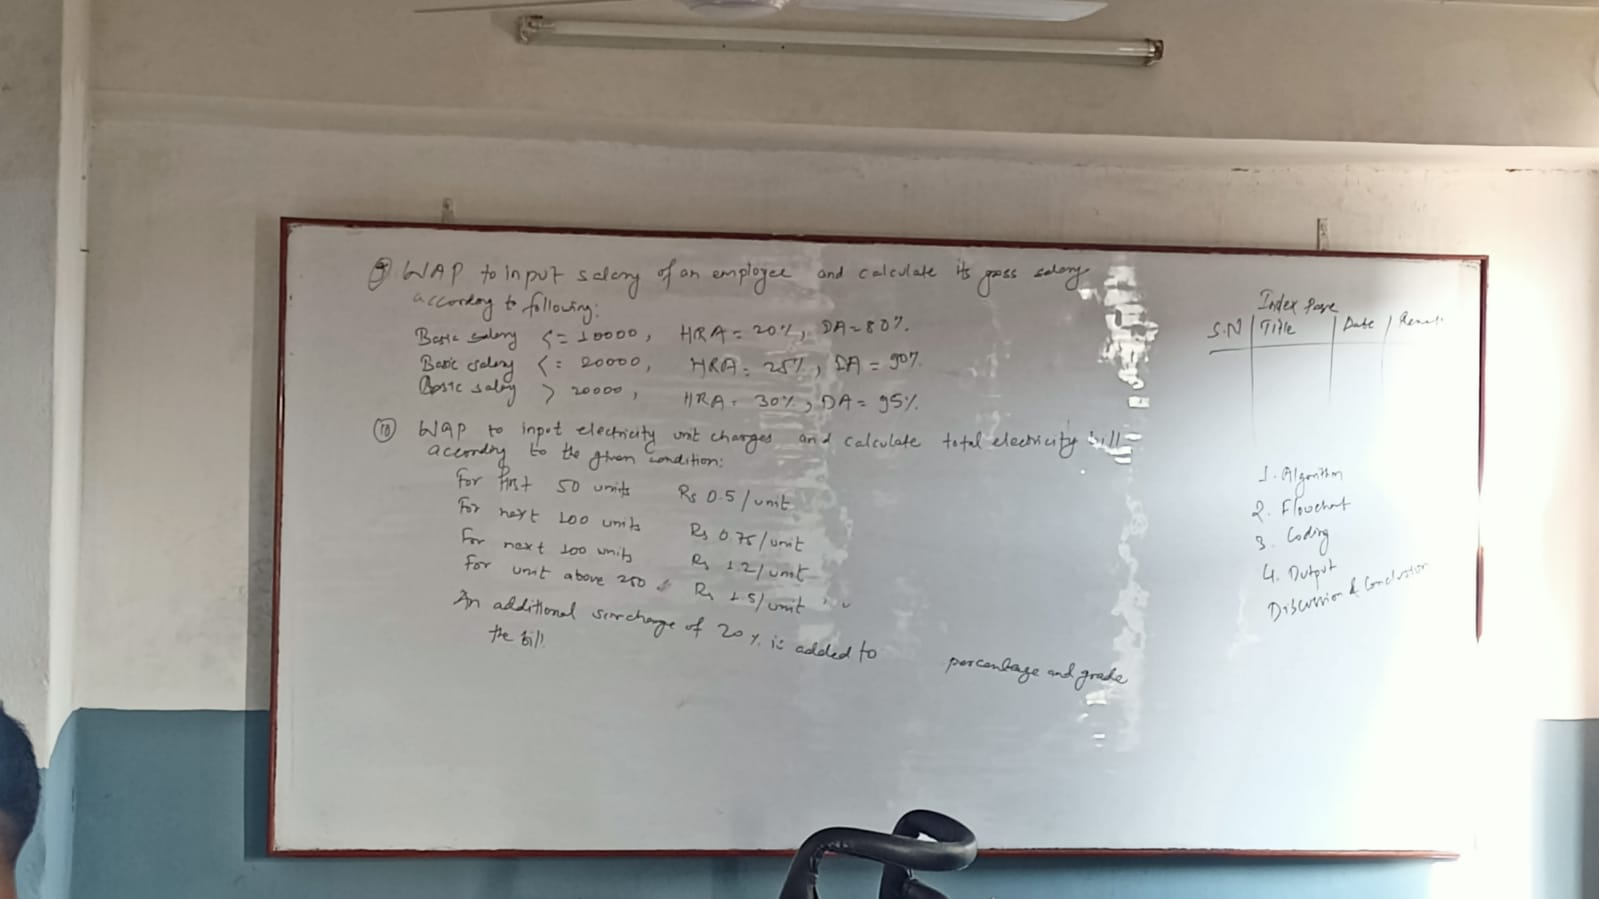 9 WAP to input salary of an employee and calculate its gross salary
according to following:
Basic salary <= 10000, HRA = 20%, DA = 80%.
Basic salary <= 20000, HRA = 25%, DA = 90%.
Basic salary > 20000, HRA = 30%, DA = 95%.
10 WAP to input electricity unit charges and calculate total electricity bill
according to the given condition:
For first 50 units Rs 0.5/unit
For next 100 units Rs 0.75/unit
For next 100 units Rs 1.2/unit
For unit above 250 Rs 1.5/unit
An additional surcharge of 20% is added to
the bill
percentage and grade
Index Page
S.N Title Date
1. Algorithm
2. Flowchart
3. Coding
4. Output
Discussion & Conclusion